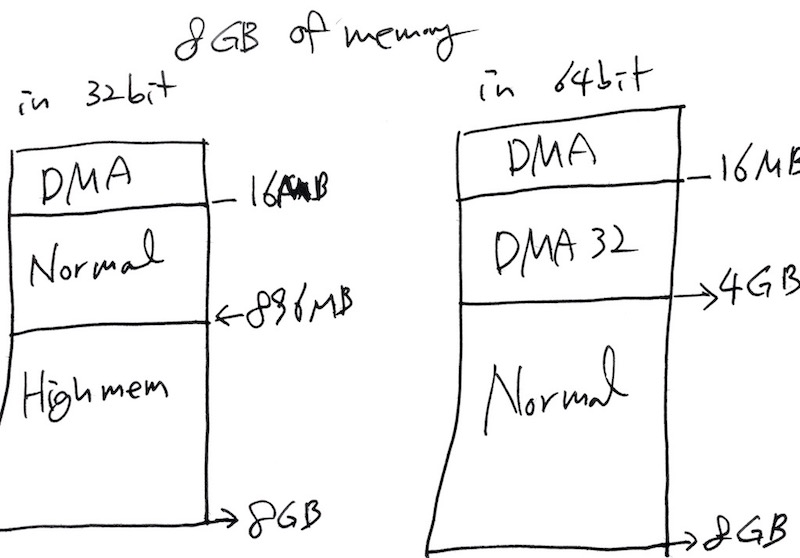 8GB of memory
in 32bit
DMA
16MB
Normal
896MB
Highmem
8GB
in 64bit
DMA
16MB
DMA32
4GB
Normal
8GB